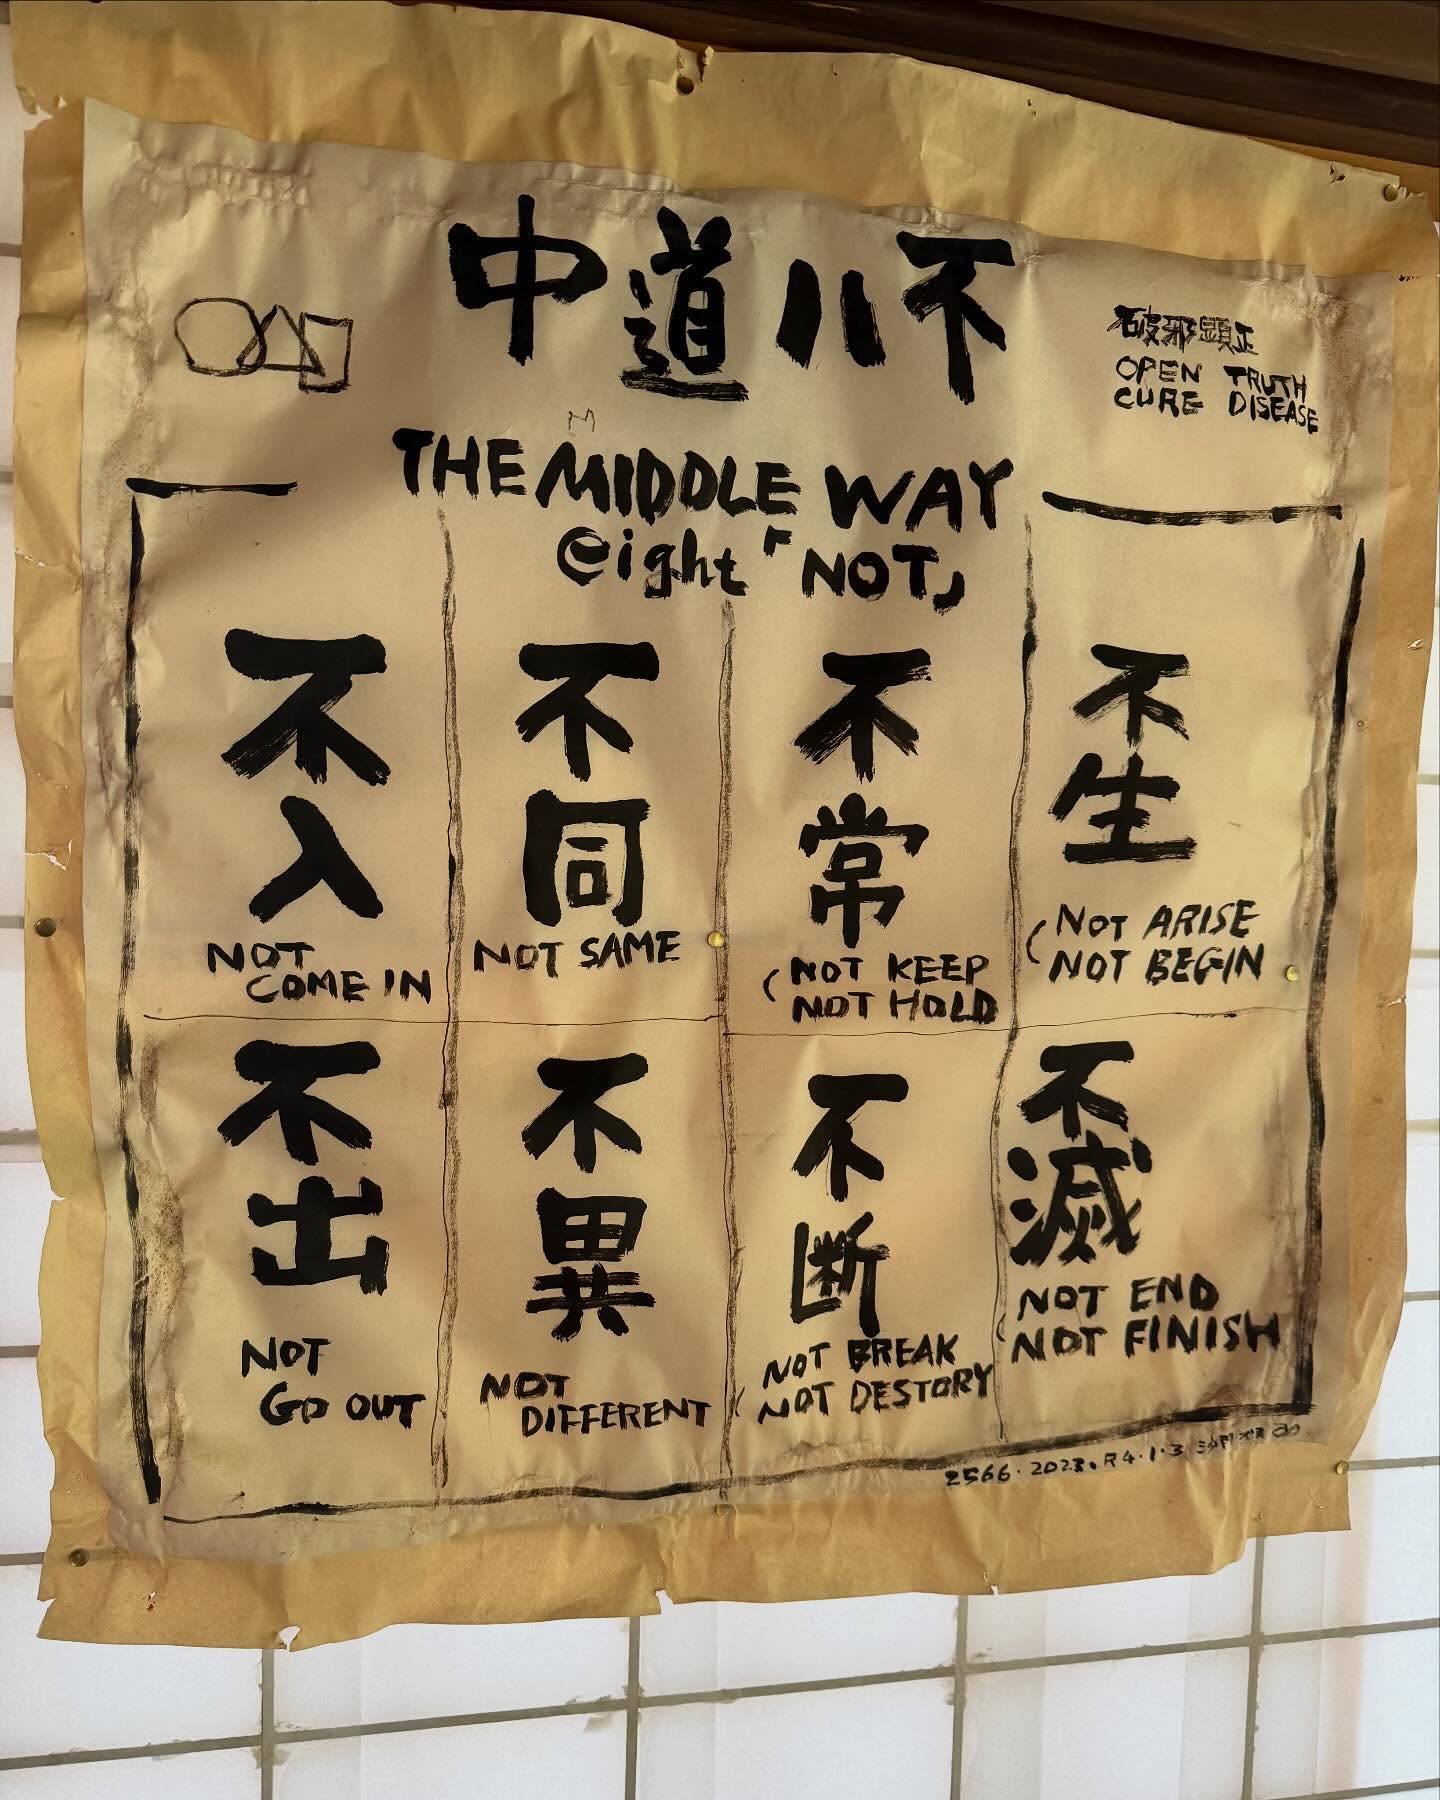 中道八不
破邪顕正
OPEN TRUTH
CURE DISEASE
M
THE MIDDLE WAY
eight「NOT」
不生
NOT ARISE
NOT BEGIN
不滅
NOT END
NOT FINISH
不常
NOT KEEP
NOT HOLD
不断
NOT BREAK
NOT DESTORY
不同
NOT SAME
不異
NOT
DIFFERENT
不入
NOT
COME IN
不出
NOT
GO OUT
2566・2023。R4・1・3